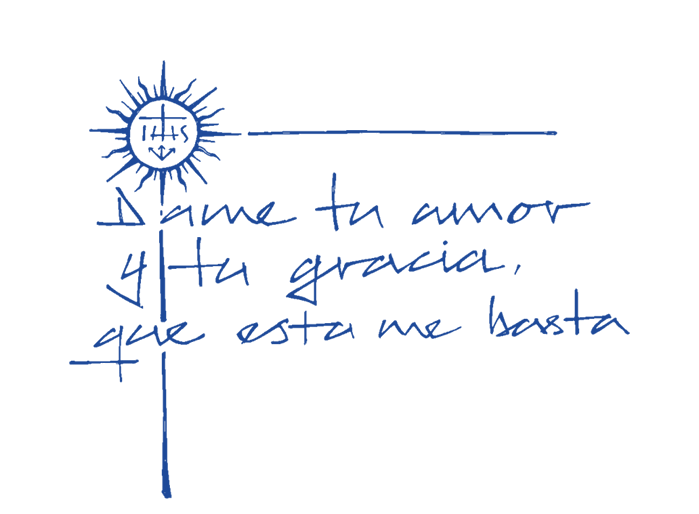 IHS
Dame tu amor
y tu gracia,
que esta me basta